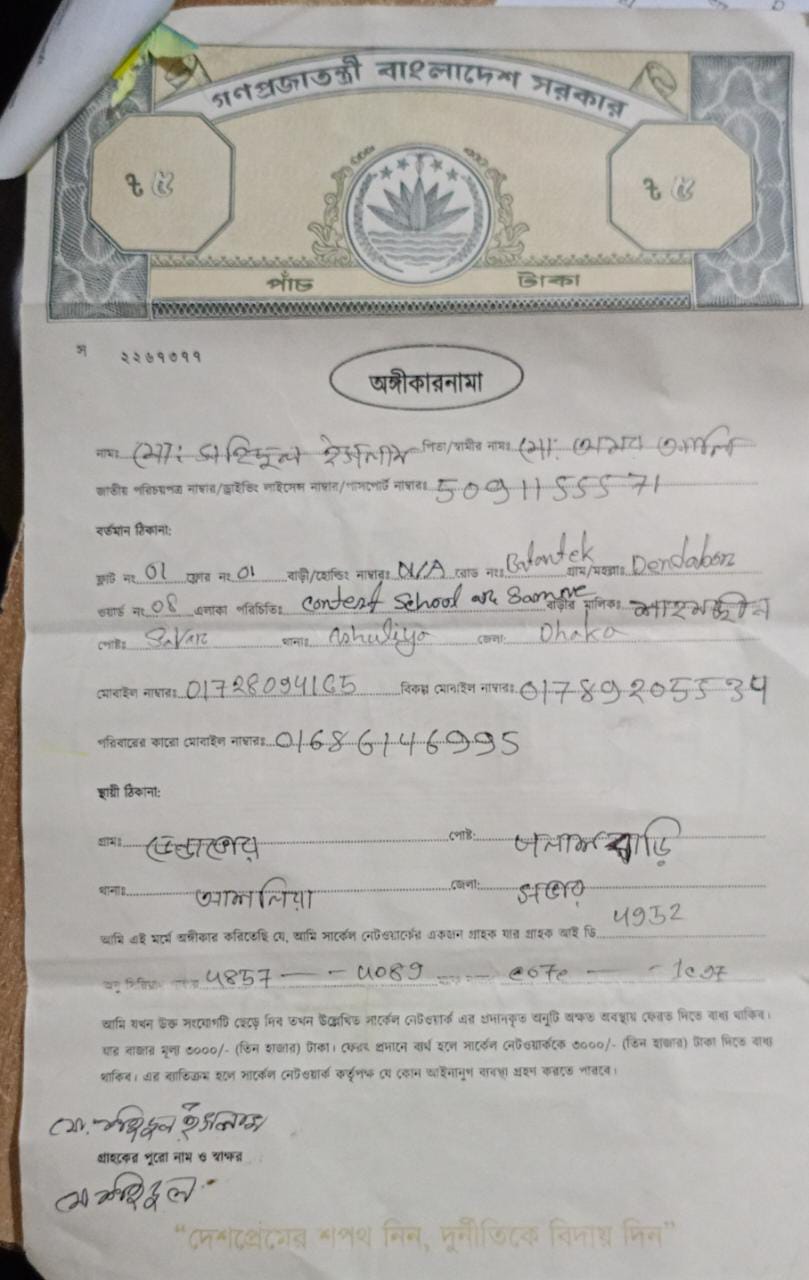 গণপ্রজাতন্ত্রী বাংলাদেশ সরকার
৳ ৫ ৳ ৫
পাঁচ টাকা
স ২২৬৭৩৭৭
অঙ্গীকারনামা
নামঃ মো: ইসলাম পিতা/স্বামীর নামঃ মো: আলি
জাতীয় পরিচয়পত্র নাম্বার/ড্রাইভিং লাইসেন্স নাম্বার/পাসপোর্ট নাম্বারঃ 5091155571
বর্তমান ঠিকানা:
ফ্লাট নং 01 ফ্লোর নং 01 বাড়ী/হোল্ডিং নাম্বারঃ N/A রোড নংঃ গ্রাম/মহল্লাঃ Dendabor
ওয়ার্ড নং 08 এলাকা পরিচিতিঃ School বাড়ীর মালিকঃ
পোষ্টঃ Savar থানাঃ Ashuliya জেলা: Dhaka
মোবাইল নাম্বারঃ 01728094165 বিকল্প মোবাইল নাম্বারঃ 01789205534
পরিবারের কারো মোবাইল নাম্বারঃ 01686146995
স্থায়ী ঠিকানা:
গ্রামঃ পোষ্ট:
থানাঃ জেলা:
আমি এই মর্মে অঙ্গীকার করিতেছি যে, আমি সার্কেল নেটওয়ার্কের একজন গ্রাহক যার গ্রাহক আই ডি 4952
অনু 4857 -- 4089
আমি যখন উক্ত সংযোগটি ছেড়ে দিব তখন উল্লেখিত সার্কেল নেটওয়ার্ক এর প্রদানকৃত অনুটি অক্ষত অবস্থায় ফেরত দিতে বাধ্য থাকিব।
যার বাজার মূল্য ৩০০০/- (তিন হাজার) টাকা। ফেরৎ প্রদানে ব্যর্থ হলে সার্কেল নেটওয়ার্ককে ৩০০০/- (তিন হাজার) টাকা দিতে বাধ্য
থাকিব। এর ব্যতিক্রম হলে সার্কেল নেটওয়ার্ক কর্তৃপক্ষ যে কোন আইনানুগ ব্যবস্থা গ্রহণ করতে পারবে।
মো. ইসলাম
গ্রাহকের পুরো নাম ও স্বাক্ষর
"দেশপ্রেমের শপথ নিন, দুর্নীতিকে বিদায় দিন"